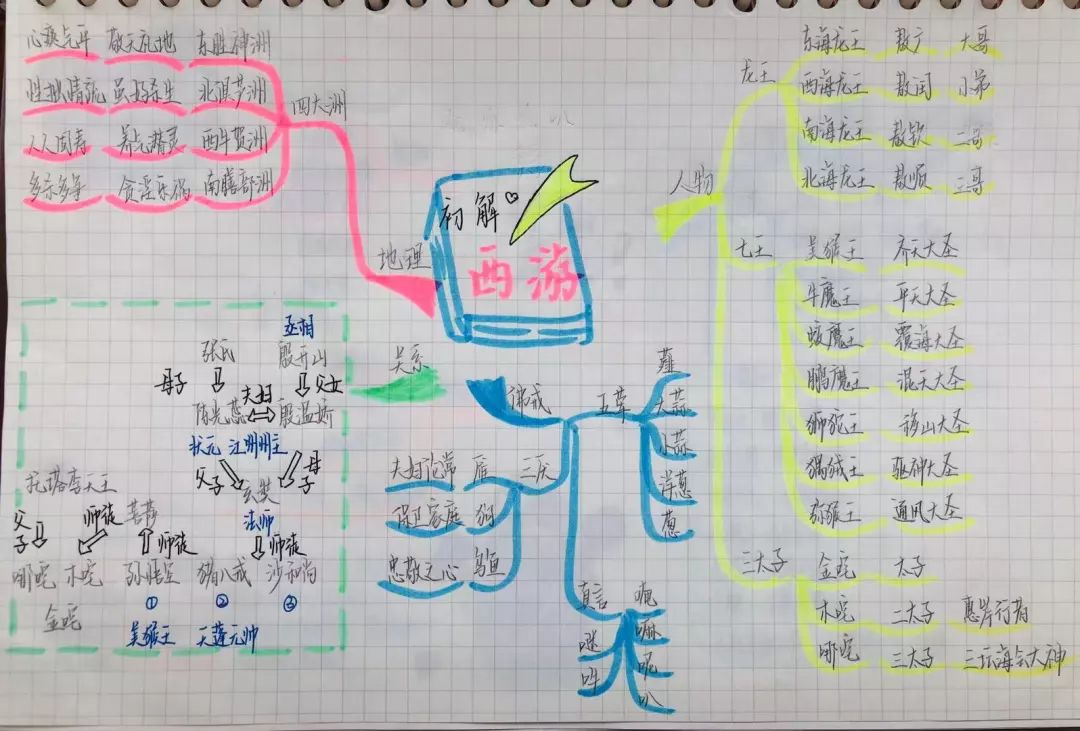 初解
西游
地理
四大洲
敬天礼地 东胜神洲
北俱芦洲
人人固寿 养气潜灵 西牛贺洲
多杀多争 贪淫乐祸 南膳部洲
人物
龙王
东海龙王 敖广 大哥
西海龙王 敖闰 小弟
南海龙王 敖钦 二哥
北海龙王 敖顺 三哥
七王
美猴王 齐天大圣
牛魔王 平天大圣
蛟魔王 覆海大圣
鹏魔王 混天大圣
狮驼王 移山大圣
驱神大圣
猕猴王 通风大圣
三太子
金吒 太子
木吒 二太子 惠岸行者
哪吒 三太子 三坛海会大神
关系
丞相
张氏 殷开山
母子 夫妇 父女
陈光蕊 殷温娇
状元 江州州主
父子 玄奘 母子
托塔李天王 法师
父子 师徒 菩萨 师徒 师徒
哪吒 木吒 孙悟空 猪八戒 沙和尚
金吒 ① ② ③
美猴王 天蓬元帅
佛戒
五荤
大蒜
小蒜
洋葱
葱
三厌
夫妇伦常 雁
保卫家庭 狗
忠敬之心 乌鱼
真言
唵
嘛
呢
叭
咪
吽